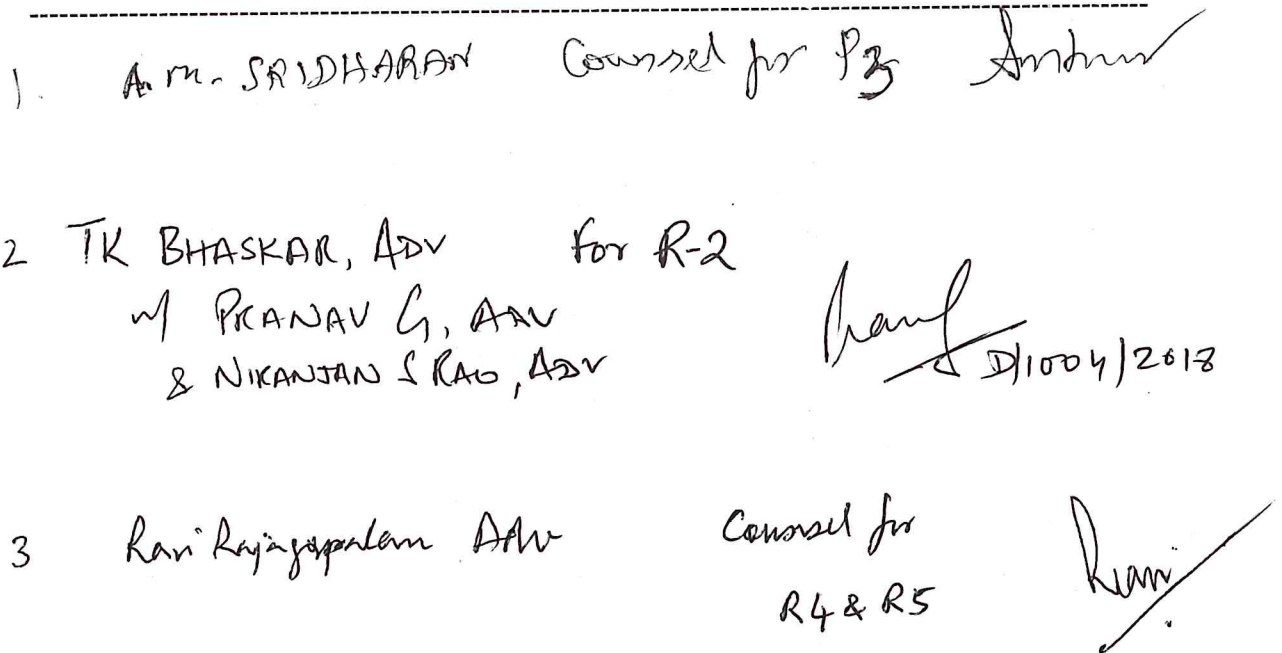 1. A. M. SRIDHARAN Counsel for P3
2 TK BHASKAR, ADV for R-2
w/ PRANAV G, ADV
& NIRANJAN S RAO, ADV
D/1004/2018
3 Ravi Rajagopalan Adv Counsel for
R4 & R5
Ravi